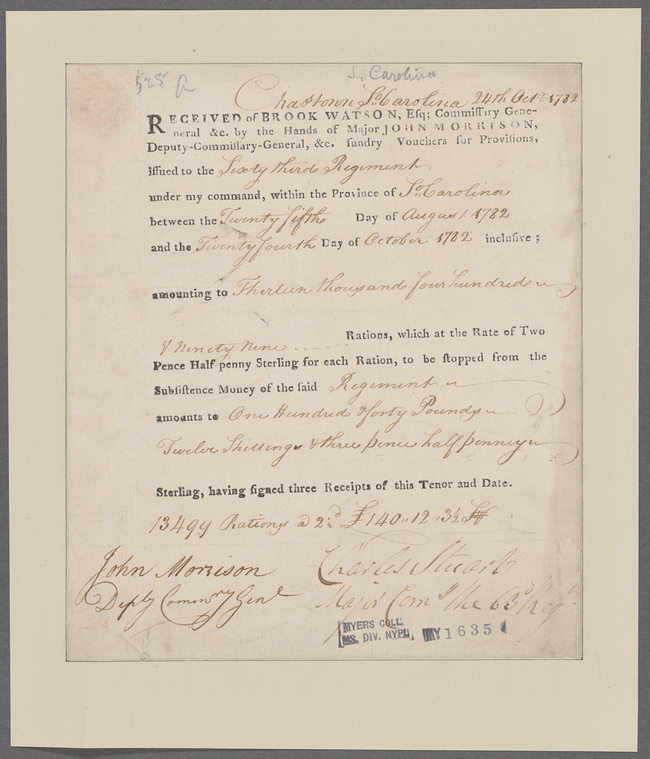 525 A
S. Carolina
Chastown So Carolina 24th Octr 1782
RECEIVED of BROOK WATSON, Esq; Commissary Gene-
neral &c. by the Hands of Major JOHN MORRISON,
Deputy-Commissary-General, &c. sundry Vouchers for Provisions,
issued to the Sixty third Regiment
under my command, within the Province of So Carolina
between the Twenty fifth Day of August 1782
and the Twenty fourth Day of October 1782 inclusive;
amounting to Thirteen thousand four hundred
& Ninety Nine Rations, which at the Rate of Two
Pence Half-penny Sterling for each Ration, to be stopped from the
Subsistence Money of the said Regiment
amounts to One Hundred & forty Pounds
Twelve Shillings & three pence half penney
Sterling, having signed three Receipts of this Tenor and Date.
13499 Rations a 2½d £140 " 12 " 3½ St
John Morrison
Depty Commry Genl
Charles Stuart
Major Comg the 63d Regt
MYERS COLL.
MS. DIV. NYPL
MY 1635